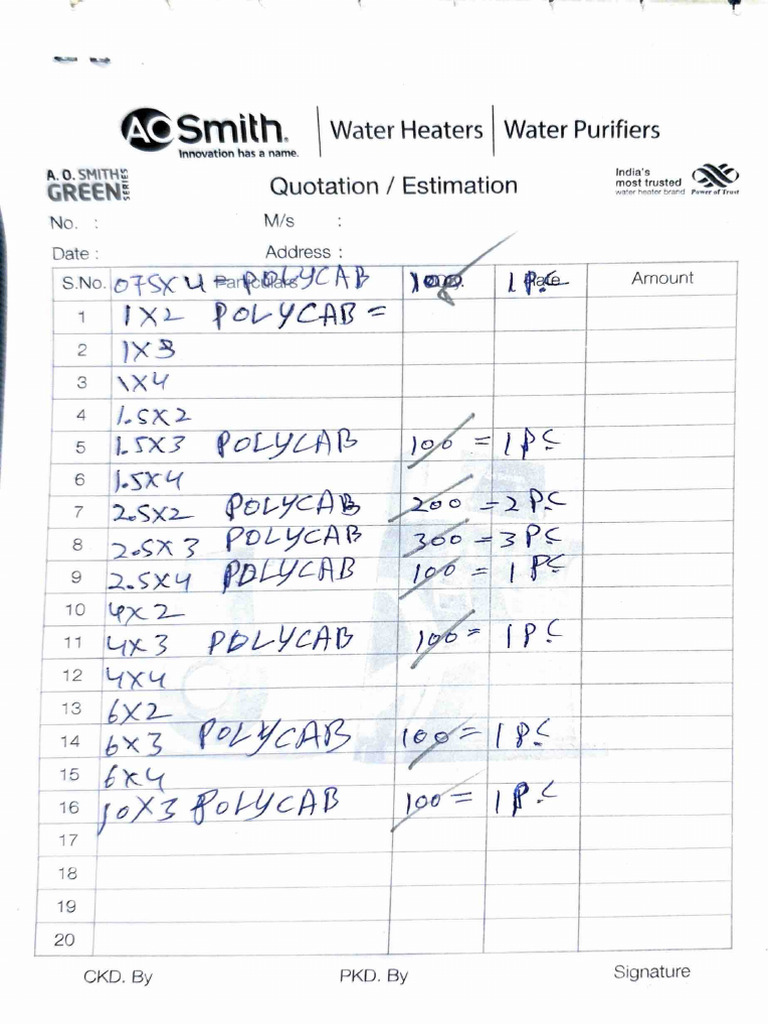 AO Smith. | Water Heaters | Water Purifiers
Innovation has a name.
A. O. SMITH GREEN SERIES
Quotation / Estimation
India's most trusted water heater brand Power of Trust
No. : M/s :
Date : Address :
S.No. Particulars 075X4 - POLYCAB 100 Rate 1 PC Amount
1 1X2 POLYCAB =
2 1X3
3 1X4
4 1.5X2
5 1.5X3 POLYCAB 100 = 1 PC
6 1.5X4
7 2.5X2 POLYCAB 200 = 2 PC
8 2.5X3 POLYCAB 300 = 3 PC
9 2.5X4 POLYCAB 100 = 1 PC
10 4X2
11 4X3 POLYCAB 100 = 1 PC
12 4X4
13 6X2
14 6X3 POLYCAB 100 = 1 PC
15 6X4
16 10X3 POLYCAB 100 = 1 PC
17
18
19
20
CKD. By PKD. By Signature